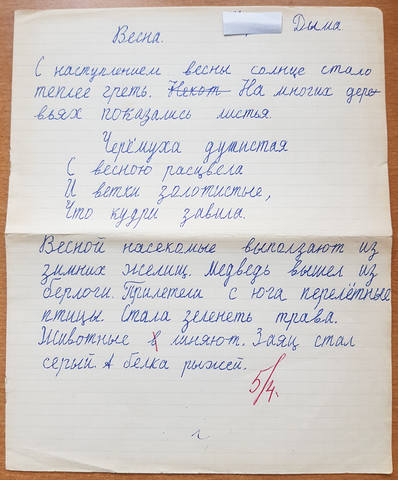 Дыма.
Весна.
С наступлением весны солнце стало
теплее греть. Некот На многих дере-
вьях показались листья.
Черёмуха душистая
С весною расцвела
И ветки золотистые,
Что кудри завила.
Весной насекомые выползают из
зимних желищ. Медведь вышел из
берлоги. Прилетели с юга перелётные
птицы. Стала зеленеть трава.
Животные линяют. Заяц стал
серый. А белка рыжей.
5/4.